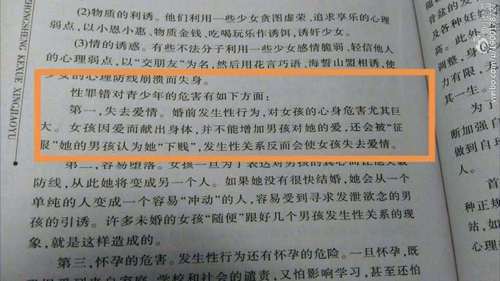 (2)物质的利诱。他们利用一些少女贪图虚荣,追求享乐的心理
弱点,以小恩小惠,物质金钱,吃喝玩乐作诱饵,诱奸少女。
(3)情的诱惑。有些不法分子利用一些少女感情脆弱,轻信他人
的心理弱点,以“交朋友”为名,然后用花言巧语,海誓山盟相诱,使
少女的心理防线崩溃而失身。
性罪错对青少年的危害有如下方面:
第一,失去爱情。婚前发生性行为,对女孩的心身危害尤其巨
大。女孩因爱而献出身体,并不能增加男孩对她的爱,还会被“征
服”她的男孩认为她“下贱”,发生性关系反而会使女孩失去爱情。
第二,容易堕落。女孩一旦为了表达对男孩的真心而让他突破
防线,从此她将变成另一个人。如果她没有很快结婚,她会从一个
单纯的人变成一个容易“冲动”的人,容易受到寻求发泄欲念的男
孩的引诱。许多未婚的女孩“随便”跟好几个男孩发生性关系的现
象,就是这样造成的。
第三,怀孕的危害。发生性行为还有怀孕的危险。一旦怀孕,既
学校和社会的谴责,又怕影响学习,甚至还怕
ZHONGSHENG KEXUE XINGJIAOYU
及各种好
高。此外
调整,身
力有限,
其一生。
断加强自
做到自
种正规
站,如
心理